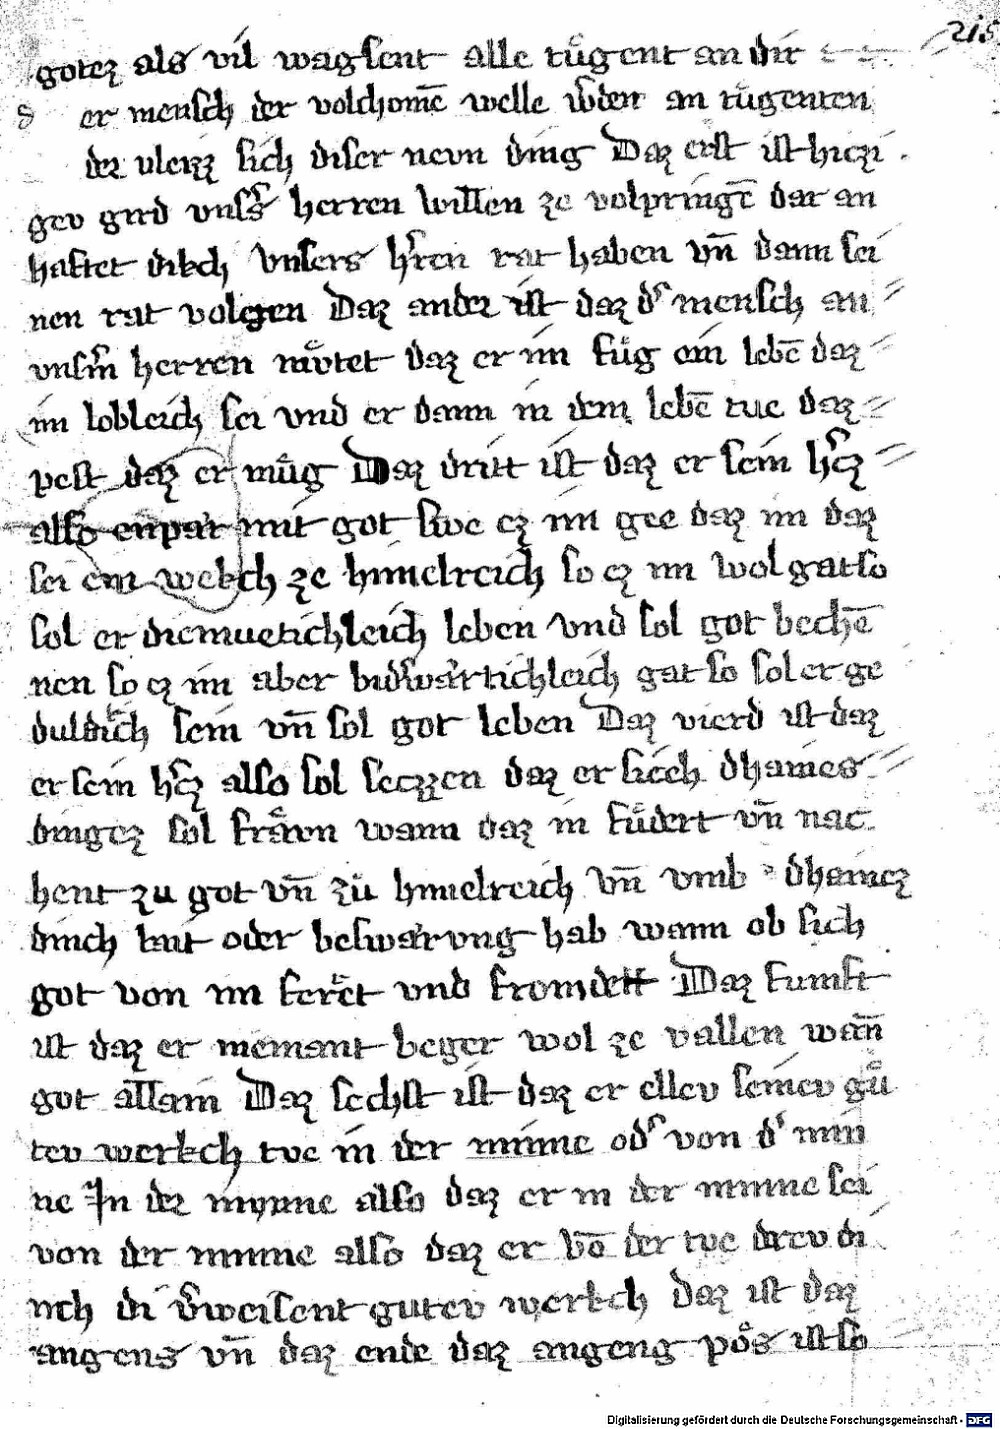 218
gotez als vil wagsent alle tůgent an dir
d er mensch der volchom̄e welle w̾den an tůgenten
der vleizz sich diser nevn ding Daz erst ist hiczi
gev gird vnsˢ herren willen ze volpringē dar an
haftet dikch vnsers hˢren rat haben vn̄ dann sei
nen rat volgen Daz ander ist daz dˢ mensch an
vnsm̄ herren můtet daz er im fůg ein lebē daz
im lobleich sei vnd er dann in dem lebē tue daz
pest daz er můg Daz dritt ist daz er sein hˢcz
also enpar mit got swe ez im gee daz im daz
sei ein wekch ze himelreich so ez im wol gat so
sol er diemuetichleich leben vnd sol got bechē
nen so ez im aber bidˢwartichleich gat so sol er ge
duldich sein vn̄ sol got leben Daz vierd ist daz
er sein hˢcz also sol seczzen daz er sich dhaines
dingez sol fraͤvn wann daz in fůdert vn̄ nac
hent zu got vn̄ zů himelreich vn̄ vmb dhainez
dinch lait oder beswarvng hab wann ob sich
got von im feret vnd fromdett Daz fumft
ist daz er niemant beger wol ze vallen wan̄
got allain Daz sechst ist daz er ellev seinev gů
tev werkch tue in der minne odˢ von dˢ min
ne In der mynne also daz er in der minne sei
von der minne also daz er vō der tue drev di
nch di v̾weisent gutev werkch Daz ist daz
angens vn̄ daz ende daz angeng pos ist so
Digitalisierung gefördert durch die Deutsche Forschungsgemeinschaft - DFG